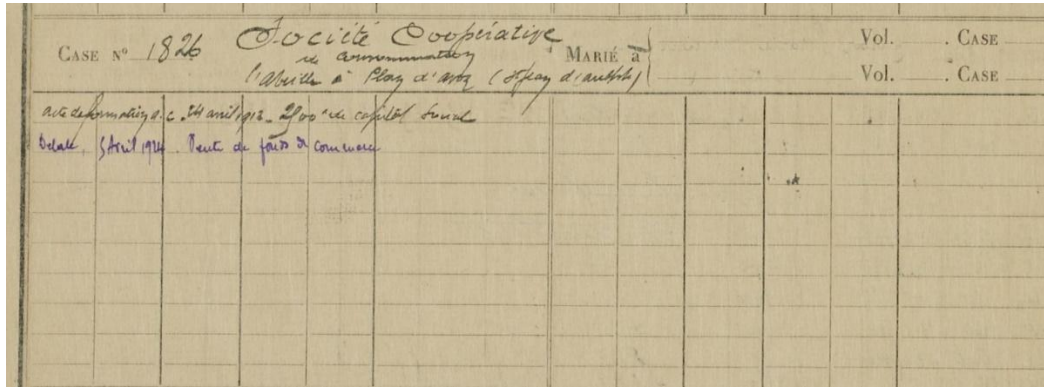 CASE N° 1826 Société Coopérative MARIÉ à Vol. . CASE
de consommation
l'abeille à Plan d'arcq (St Jean d'aulph) Vol. . CASE
acte de formation s. c. 24 avril 1912 - 2500 de capital social
Delale, 5 Avril 1924. Vente de fonds de commerce